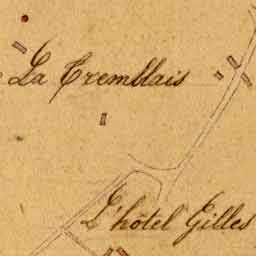 La Tremblais
L'hôtel Gilles